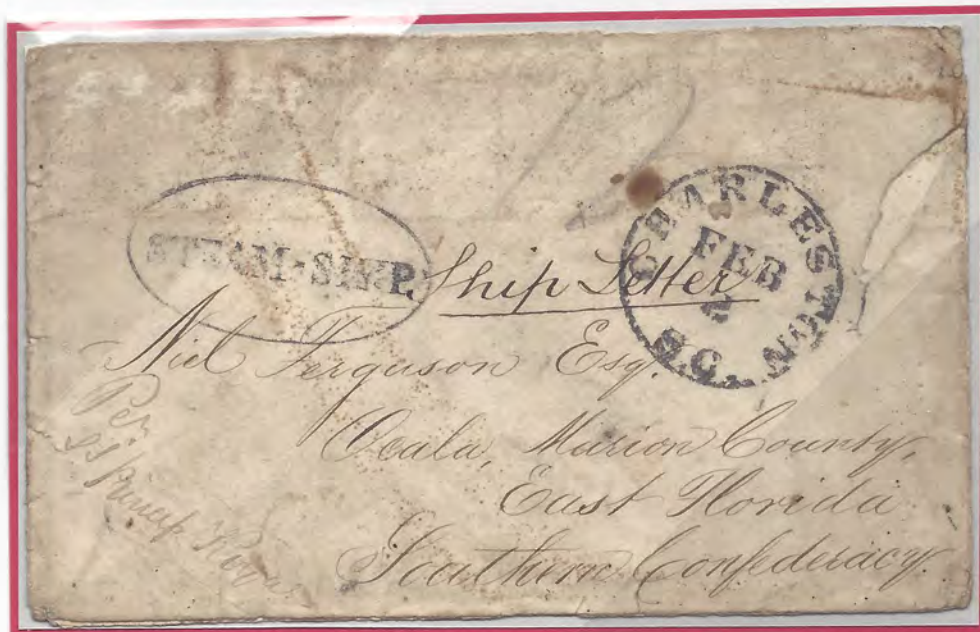 STEAM-SHIP.
CHARLESTON
FEB
S.C.
Ship Letter
Niel Ferguson Esq.
Ocala, Marion County,
East Florida
Southern Confederacy
Per
SS